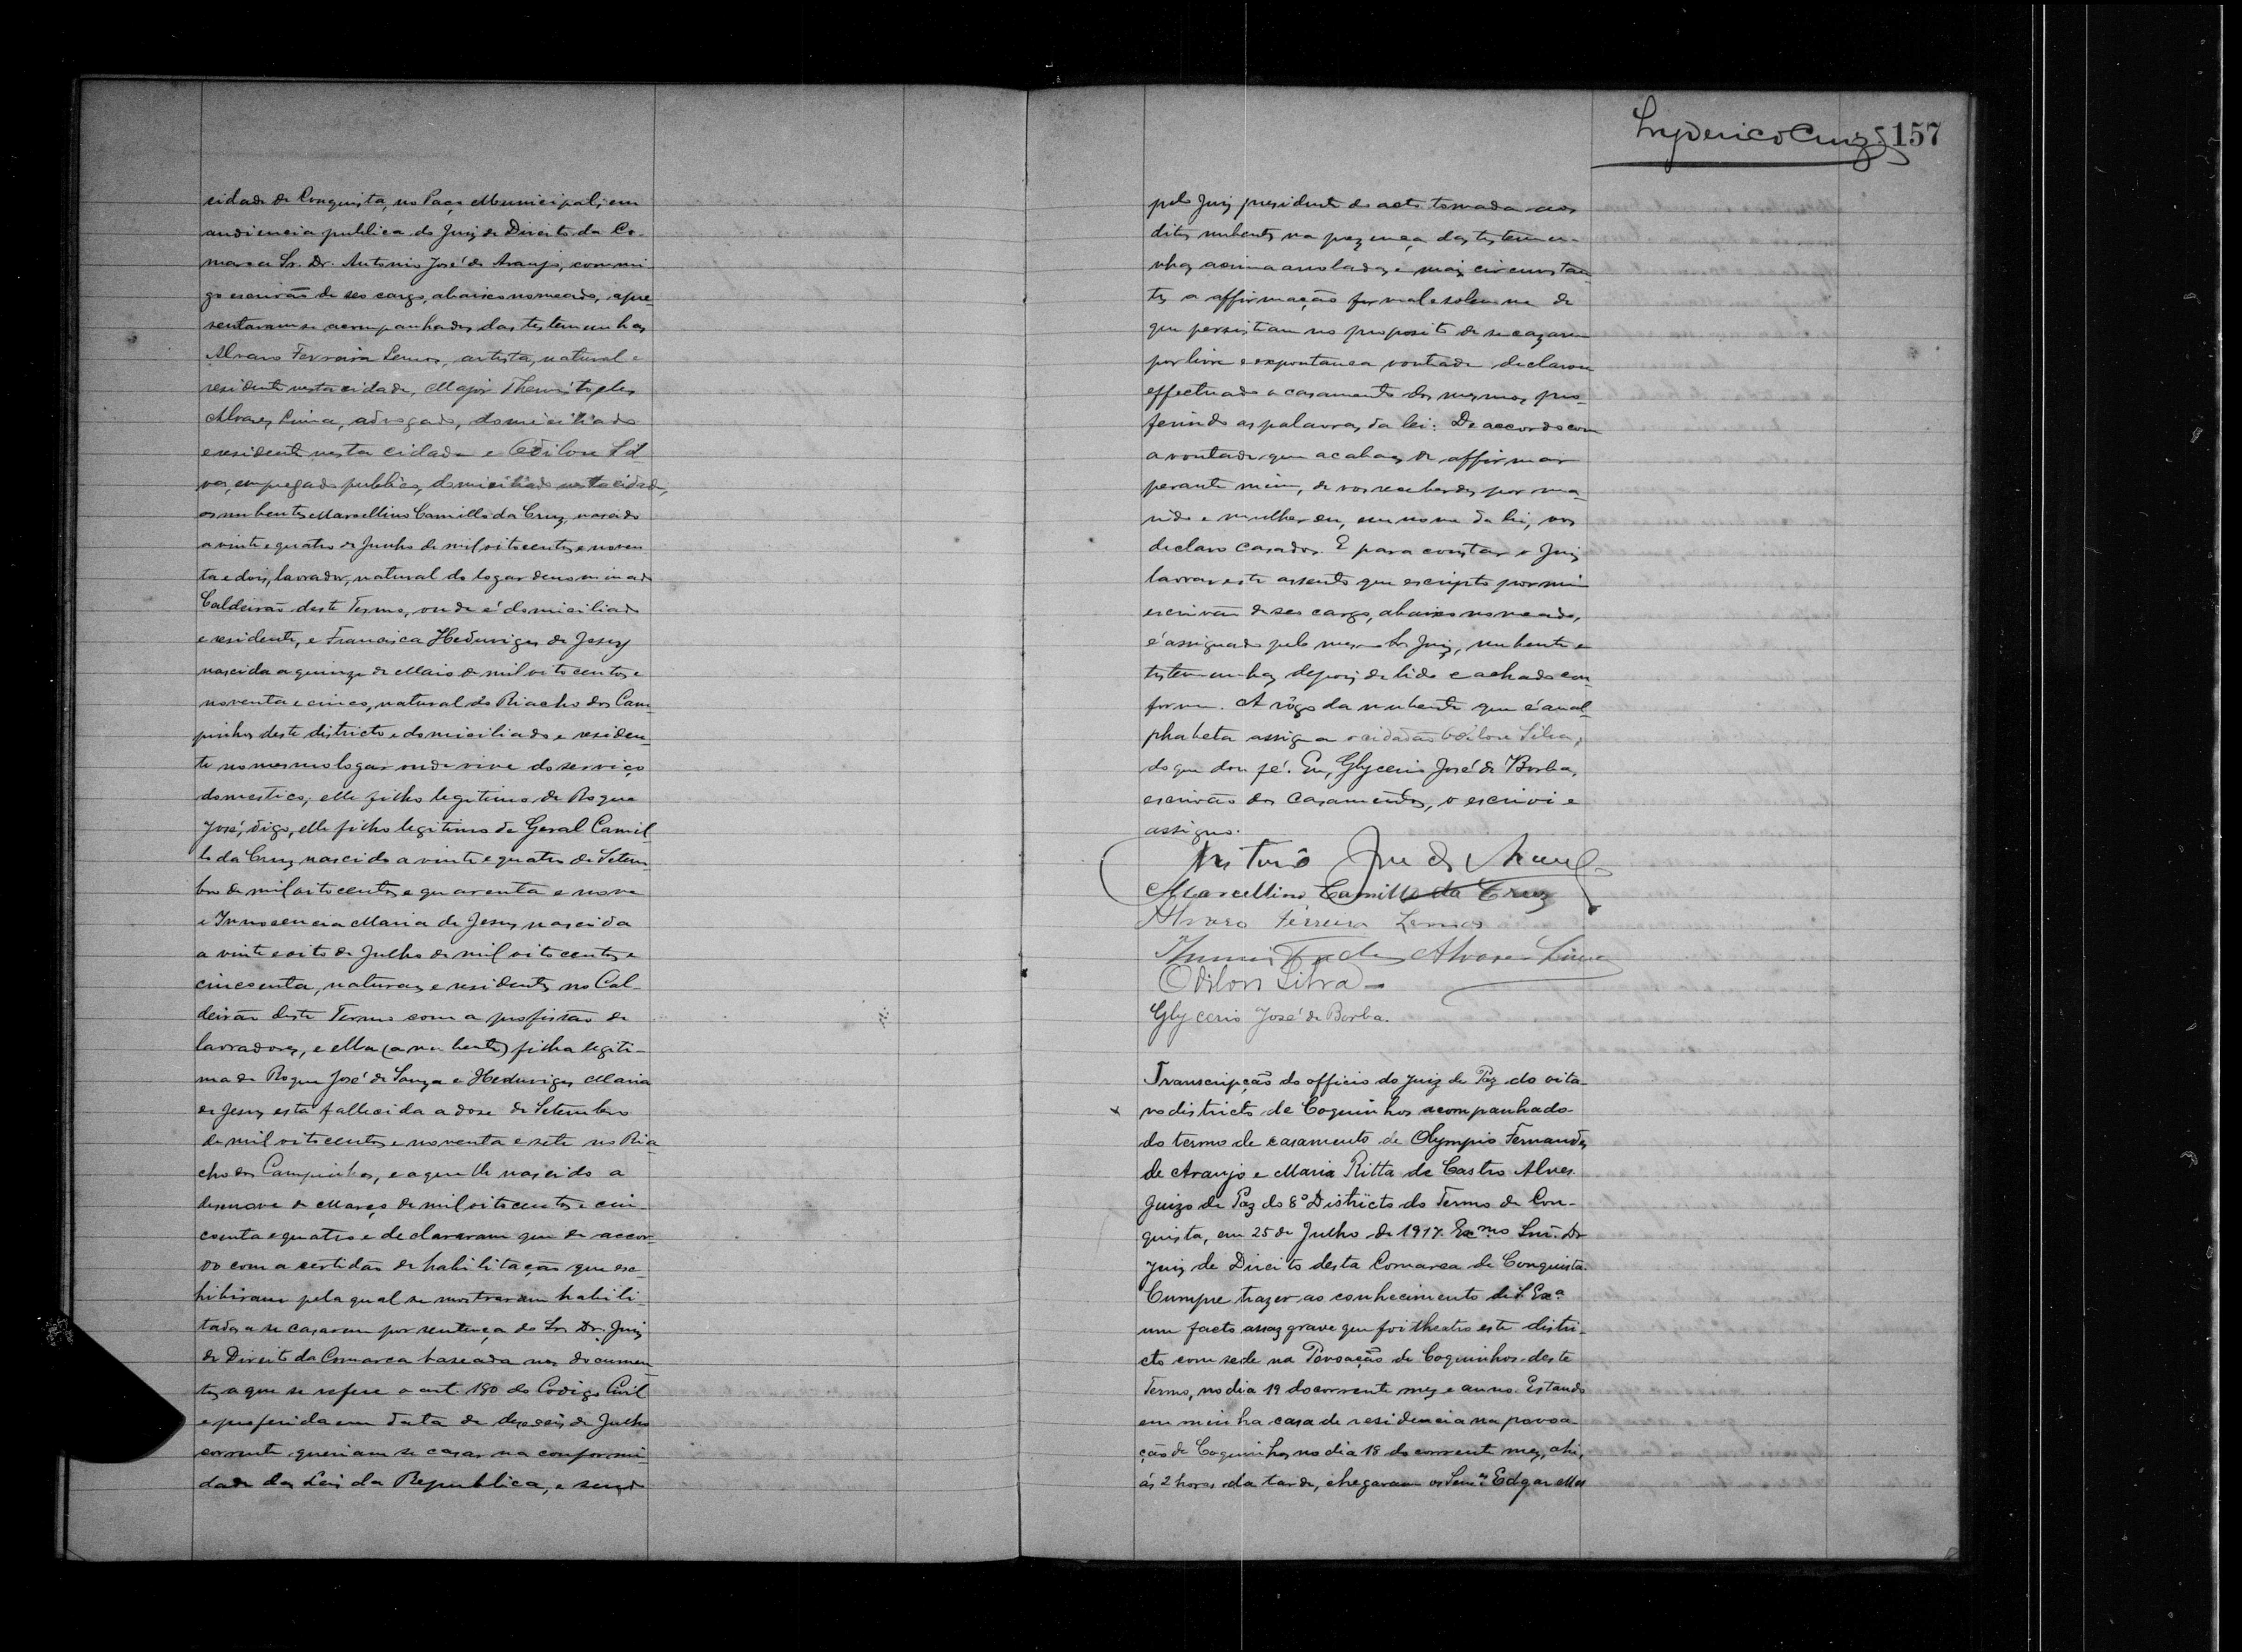 cidade de Conquista, no Paço Municipal, em
audiencia publica do Juiz de Direito da Co-
marca Sr. Dr. Antonio José de Araujo, commi-
go escrivão de seo cargo, abaixo nomeado, apre-
sentaram-se acompanhados das testemunhas
Alvaro Ferreira Lemos, artista, natural e
residente nesta cidade, Major Themistocles
Alvares Lima, advogado, domiciliado
e residente nesta cidade e Odilon Sil-
va, empregado publico, domiciliado nesta cidade,
os nubentes Marcellino Camillo da Cruz, nascido
a vinte e quatro de Junho de mil oitocentos e noven
ta e dois, lavrador, natural do logar denominado
Caldeirão deste Termo, onde é domiciliado
e residente, e Francisca Heduviges de Jesus
nascida a quinze de Maio de mil oitocentos e
noventa e cinco, natural do Riacho dos Cam-
pinhos deste districto e domiciliada e residen-
te no mesmo logar onde vive do serviço
domestico; elle filho legitimo de Roque
José, digo, elle filho legitimo de Geral Camil-
lo da Cruz nascido a vinte e quatro de Setem-
bro de mil oitocentos e quarenta e nove
e Innocencia Maria de Jesus nascida
a vinte e oito de Julho de mil oitocentos e
cincoenta, naturaes e residentes no Cal-
deirão deste Termo com a profissão de
lavradores, e ella (a nubente) filha legiti-
ma de Roque José de Souza e Heduviges Maria
de Jesus esta fallecida a dose de Setembro
de mil oitocentos e noventa e sete no Ria
cho dos Campinhos, e aquelle nascido a
desenove de Março de mil oitocentos e cin-
coenta e quatro e declararam que de accor-
do com a certidão de habilitação que exc-
hibiram pela qual se mostraram habili-
tados a se casarem por sentença do Sr. Dr. Juiz
de Direito da Comarca baseada nos documen
tos a que se refere o art. 180 do Codigo Civil
e proferida em data de deseseis de Julho
corrente queriam se casar na conformi-
dade das Leis da Republica, e sendo
Lyderico Cruz 157
pelo Juiz presidente do acto tomada aos
ditos nubentes na prezença das testemu-
nhas acima arroladas e mais circunstan
tes a affirmação formal e solemne de
que persistiam no proposito de se cazarem
por livre e expontanea vontade declarou
effectuado o casamento dos mesmos, pro-
ferindo as palavras da lei: De accordo com
a vontade que acabaes de affirmar
perante mim, de vos receberdes por ma-
rido e mulher eu, em nome da lei, vos
declaro casados. E para constar o Juiz
lavrar este assento que escripto por mim
escrivão de seo cargo, abaixo nomeado,
é assignado pelo mesmo Sr Juiz, nubente e
testemunhas depois de lido e achado con-
forme. A rôgo da nubente que é anal-
phabeta assigna o cidadão Odilon Silva,
do que dou fé. Eu, Glycerio José de Borba,
escrivão dos Casamentos, o escrivi e
assigno.
Antonio José de Araujo
Marcellino Camillo da Cruz
Alvaro Ferreira Lemos
Themistocles Alvares Lima
Odilon Silva
Glycerio José de Borba.
Transcripção do officio do Juiz de Paz do oita-
x vo districto de Coquinhos acompanhado
do termo de casamento de Olympio Fernandes
de Araujo e Maria Ritta de Castro Alves
Juizo de Paz do 8º Districto do Termo de Con-
quista, em 25 de Julho de 1917. Exmo Snr. Dr
Juiz de Direito desta Comarca de Conquista.
Cumpre trazer ao conhecimento de S. Exª
um facto assaz grave que foi theatro este distri-
cto com sede na Povoação de Coquinhos deste
Termo, no dia 19 do corrente mez e anno. Estando
em minha casa de residencia na povoa-
ção de Coquinhos, no dia 18 do corrente mez, ahi,
ás 2 horas da tarde, chegaram os Senrs Edgar